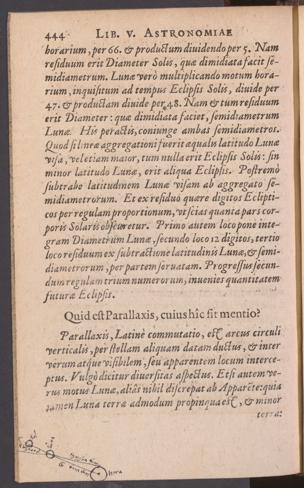 444 LIB. V. ASTRONOMIAE
horarium, per 66. & productum diuidendo per 5. Nam
residuum erit Diameter Solis, quæ dimidiata facit se-
midiametrum. Lunæ verò multiplicando motum hora-
rium, inquisitum ad tempus Eclipsis Solis, diuide per
47. & productam diuide per 48. Nam & tum residuum
erit Diameter: quæ dimidiata faciet, semidiametrum
Lunæ. His peractis, coniunge ambas semidiametros.
Quod si lineæ aggregationi fuerit æqualis latitudo Lunæ
visa, vel etiam maior, tum nulla erit Eclipsis Solis: sin
minor latitudo Lunæ, erit aliqua Eclipsis. Postremò
subtrahe latitudinem Lunæ visam ab aggregato se-
midiametrorum. Et ex residuo quære digitos Eclipti-
cos per regulam proportionum, vt scias quanta pars cor-
poris Solaris obscuretur. Primo autem loco pone inte-
gram Diametrum Lunæ, secundo loco 12 digitos, tertio
loco residuum ex subtractione latitudinis Lunæ, & semi-
diametrorum, per partem seruatam. Progressus secun-
dum regulam trium numerorum, inuenies quantitatem
futuræ Eclipsis.
Quid est Parallaxis, cuius hîc fit mentio?
Parallaxis, Latinè commutatio, est arcus circuli
verticalis, per stellam aliquam datam ductus, & inter
verum atque visibilem, seu apparentem locum interce-
ptus. Vulgò dicitur diuersitas aspectus. Etsi autem ve-
rus motus Lunæ, aliàs nibil discrepat ab Apparēte: quia
tamen Luna terræ admodum propinqua est, & minor
terra:
terra